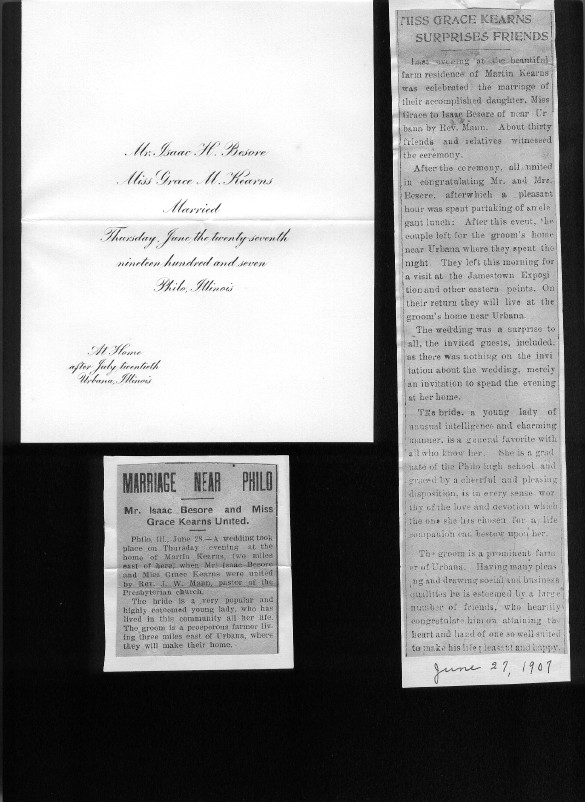 Mr. Isaac H. Besore
Miss Grace M. Kearns
Married
Thursday, June the twenty-seventh
nineteen hundred and seven
Philo, Illinois
At Home
after July twentieth
Urbana, Illinois
MARRIAGE NEAR PHILO
Mr. Isaac Besore and Miss
Grace Kearns United.
Philo, Ill., June 28.—A wedding took
place on Thursday evening at the
home of Martin Kearns, two miles
east of here, when Mr. Isaac Besore
and Miss Grace Kearns were united
by Rev. J. W. Mann, pastor of the
Presbyterian church.
The bride is a very popular and
highly esteemed young lady, who has
lived in this community all her life.
The groom is a prosperous farmer liv-
ing three miles east of Urbana, where
they will make their home.
MISS GRACE KEARNS
SURPRISES FRIENDS
Last evening at the beautiful
farm residence of Martin Kearns
was celebrated the marriage of
their accomplished daughter, Miss
Grace to Isaac Besore of near Ur
bana by Rev. Mann. About thirty
friends and relatives witnessed
the ceremony.
After the ceremony, all united
in congratulating Mr. and Mrs.
Besore, afterwhich a pleasant
hour was spent partaking of an ele
gant lunch. After this event, the
couple left for the groom's home
near Urbana where they spent the
night. They left this morning for
a visit at the Jamestown Exposi
tion and other eastern points. On
their return they will live at the
groom's home near Urbana
The wedding was a surprise to
all, the invited guests, included,
as there was nothing on the invi
tation about the wedding, merely
an invitation to spend the evening
at her home.
The bride, a young lady of
unusual intelligence and charming
manner, is a general favorite with
all who know her. She is a grad
uate of the Philo high school and
graced by a cheerful and pleasing
disposition, is in every sense wor
thy of the love and devotion which
the one she has chosen for a life
companion can bestow upon her.
The groom is a prominent farm
er of Urbana. Having many pleas
ing and drawing social and business
qualities he is esteemed by a large
number of friends, who heartily
congratulate him on attaining the
heart and hand of one so well suited
to make his life pleasant and happy.
June 27, 1907